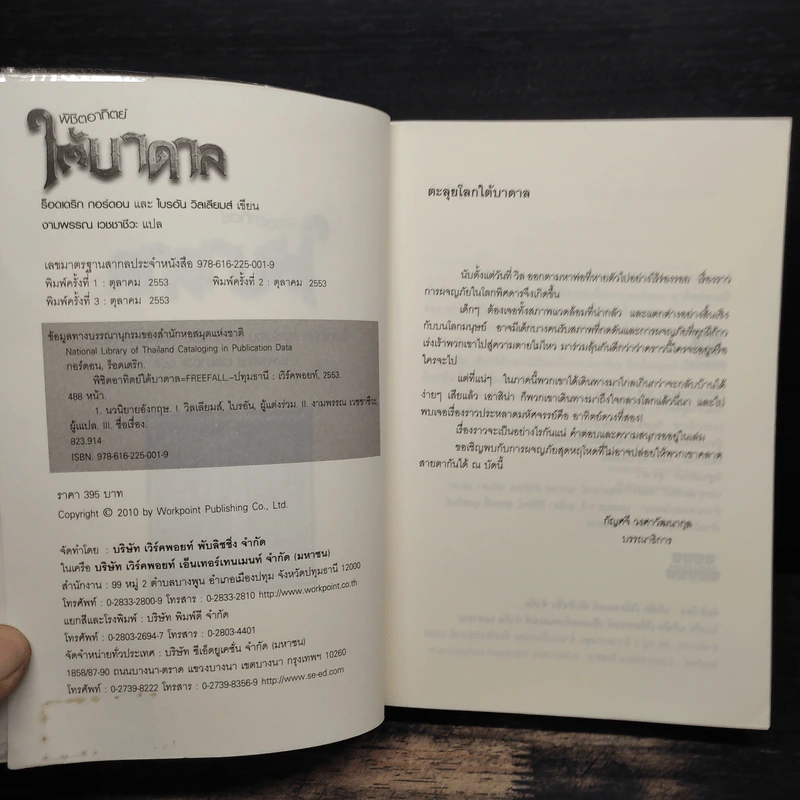 พิชิตอาทิตย์
ใต้บาดาล
ร็อดเดริก กอร์ดอน และ ไบรอัน วิลเลียมส์ เขียน
งามพรรณ เวชชาชีวะ แปล
เลขมาตรฐานสากลประจำหนังสือ 978-616-225-001-9
พิมพ์ครั้งที่ 1 : ตุลาคม 2553 พิมพ์ครั้งที่ 2 : ตุลาคม 2553
พิมพ์ครั้งที่ 3 : ตุลาคม 2553
ข้อมูลทางบรรณานุกรมของสำนักหอสมุดแห่งชาติ
National Library of Thailand Cataloging in Publication Data
กอร์ดอน, ร็อดเดริก.
พิชิตอาทิตย์ใต้บาดาล=FREEFALL.-ปทุมธานี : เวิร์คพอยท์, 2553.
488 หน้า.
1. นวนิยายอังกฤษ. I. วิลเลียมส์, ไบรอัน, ผู้แต่งร่วม. II. งามพรรณ เวชชาชีวะ,
ผู้แปล. III. ชื่อเรื่อง.
823.914
ISBN: 978-616-225-001-9
ราคา 395 บาท
Copyright © 2010 by Workpoint Publishing Co., Ltd.
จัดทำโดย : บริษัท เวิร์คพอยท์ พับลิชชิ่ง จำกัด
ในเครือ บริษัท เวิร์คพอยท์ เอ็นเทอร์เทนเมนท์ จำกัด (มหาชน)
สำนักงาน : 99 หมู่ 2 ตำบลบางพูน อำเภอเมืองปทุม จังหวัดปทุมธานี 12000
โทรศัพท์ : 0-2833-2800-9 โทรสาร : 0-2833-2810 http://www.workpoint.co.th
แยกสีและโรงพิมพ์ : บริษัท พิมพ์ดี จำกัด
โทรศัพท์ : 0-2803-2694-7 โทรสาร : 0-2803-4401
จัดจำหน่ายทั่วประเทศ : บริษัท ซีเอ็ดยูเคชั่น จำกัด (มหาชน)
1858/87-90 ถนนบางนา-ตราด แขวงบางนา เขตบางนา กรุงเทพฯ 10260
โทรศัพท์ : 0-2739-8222 โทรสาร : 0-2739-8356-9 http://www.se-ed.com
ตะลุยโลกใต้บาดาล
นับตั้งแต่วันที่ วิล ออกตามหาพ่อที่หายตัวไปอย่างไร้ร่องรอย เรื่องราว
การผจญภัยในโลกพิศดารจึงเกิดขึ้น
เด็กๆ ต้องเจอทั้งสภาพแวดล้อมที่น่ากลัว และแตกต่างอย่างสิ้นเชิง
กับบนโลกมนุษย์ อาจมีเด็กบางคนรับสภาพที่กดดันและการผจญภัยที่
เร่งเร้าพวกเขาไปสู่ความตายไม่ไหว มาร่วมลุ้นกันดีกว่าว่าคราวนี้ใครจะอยู่หรือ
ใครจะไป
แต่ที่แน่ๆ ในภาคนี้พวกเขาได้เดินทางมาไกลเกินกว่าจะกลับบ้านได้
ง่ายๆ เสียแล้ว เอาสิน่า ก็พวกเขาเดินทางมาถึงใจกลางโลกแล้วนี่นา และได้
พบเจอเรื่องราวประหลาดมหัศจรรย์คือ อาทิตย์ดวงที่สอง!
เรื่องราวจะเป็นอย่างไรกันแน่ คำตอบและความสนุกรออยู่ในเล่ม
ขอเชิญพบกับการผจญภัยสุดหฤโหดที่ไม่อาจปล่อยให้พวกเขาคลาด
สายตากันได้ ณ บัดนี้
กัญศจี วงศาวัฒนากุล
บรรณาธิการ